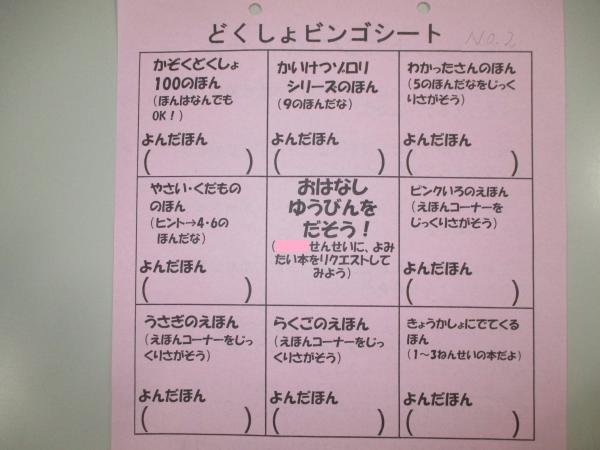 どくしょビンゴシート
No.2
かぞくどくしょ
100のほん
(ほんはなんでも
OK!)
よんだほん
(　　　)
かいけつゾロリ
シリーズのほん
(9のほんだな)
よんだほん
(　　　)
わかったさんのほん
(5のほんだなをじっく
りさがそう)
よんだほん
(　　　)
やさい・くだもの
のほん
(ヒント→4・6の
ほんだな)
よんだほん
(　　　)
おはなし
ゆうびんを
だそう！
(　　せんせいに、よみ
たい本をリクエストして
みよう)
ピンクいろのえほん
(えほんコーナーを
じっくりさがそう)
よんだほん
(　　　)
うさぎのえほん
(えほんコーナーをじっ
くりさがそう)
よんだほん
(　　　)
らくごのえほん
(えほんコーナーをじっ
くりさがそう)
よんだほん
(　　　)
きょうかしょにでてくる
ほん
(1～3ねんせいの本だよ)
よんだほん
(　　　)